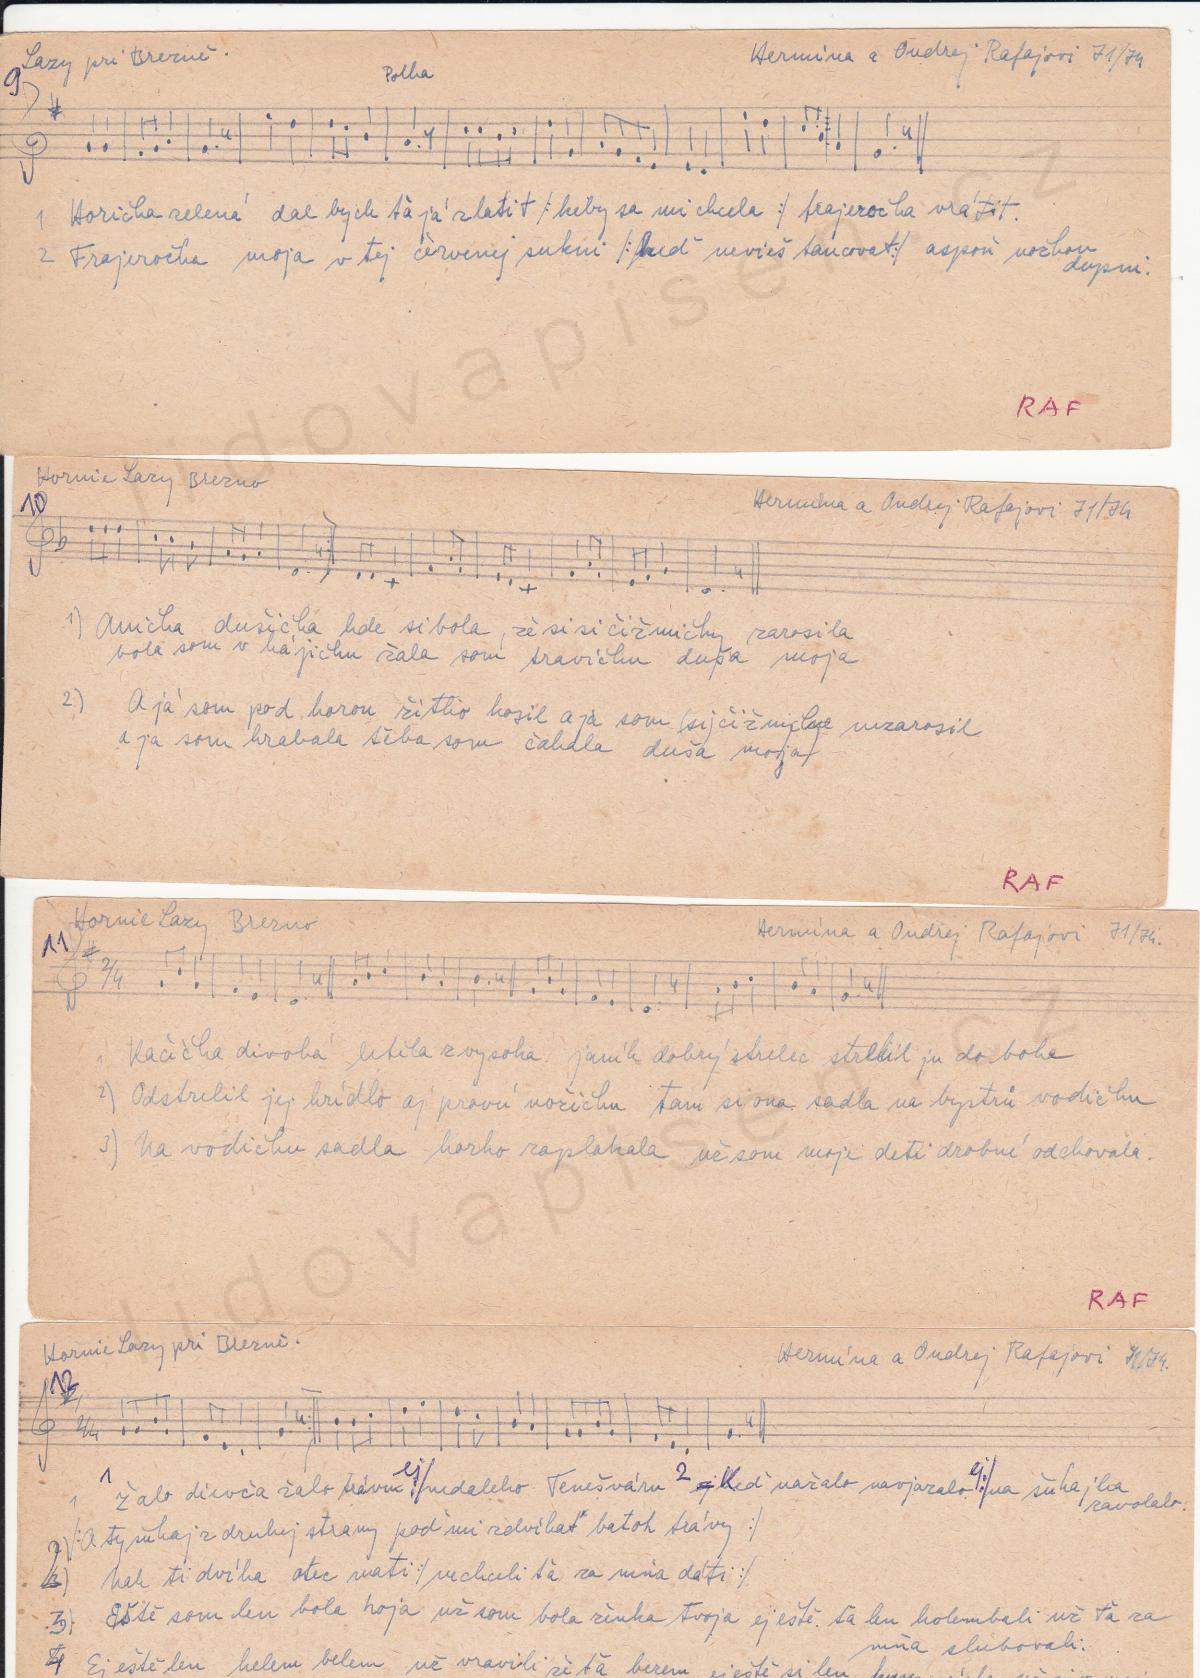 Lazy pri Brezně.
Hermína a Ondrej Rafajovi 71/74
9
Polka
1 Horička zelená dal bych ťa já zlatiť /: keby sa mi chcela :/ frajeročka vrátit.
2 Frajeročka moja v tej červenej sukni /: keď nevieš tancovat :/ aspoň nožkou
dupni.
RAF
Hornie Lazy Brezno
Hermína a Ondrej Rafajovi 71/74
10
1) Anička dušička kde si bola, že si si čižmičky zarosila
bola som v hájičku žala som travičku duša moja
2) A já som pod horou žitko kosil a já som si čižmičke nezarosil
a ja som hrabala těba som čakala duša moja
RAF
Hornie Lazy Brezno
Hermína a Ondrej Rafajovi 71/74.
11
2/4
1 Kačička divoká letila zvysoka janík dobrý strelec strelil ju do boka
2) Odstrelil jej krídlo aj pravú nožičku tam si ona sadla na bystrů vodičku
3) Na vodičku sadla horko zaplakala už som moje deti drobné odchovala.
RAF
Hornie Lazy pri Brezně.
Hermína a Ondrej Rafajovi 71/74.
12
2/4
1 Žalo dievča žalo trávu ej:/ nedaleko Temešváru 2 Keď nažalo naviazalo ej:/ na šuhajka
zavolalo.
2) /: A ty šuhaj z druhej strany poď mi zdvihať batoh trávy :/
3) Nak ti dvíha otec mati :/ nechceli ťa za mňa dáti :/
3) Eště som len bola hoja už som bola ženka tvoja ej eště ťa len kolembali už ťa za
mňa slubovali.
4 Ej eště len helem belem už vravili že ťa berem ej eště si len